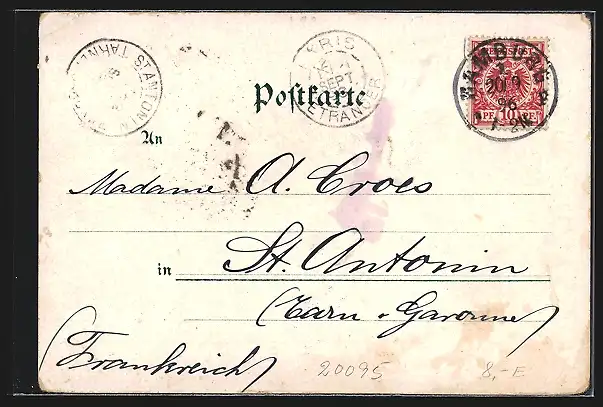 ST ANTONIN
PARIS
SEPT.
ETRANGER
HAMBURG
20/9
96
10
Postkarte
An
Madame A. Croes
in St. Antonin
(Tarn-Garonne)
(Frankreich)
20095
8,-E